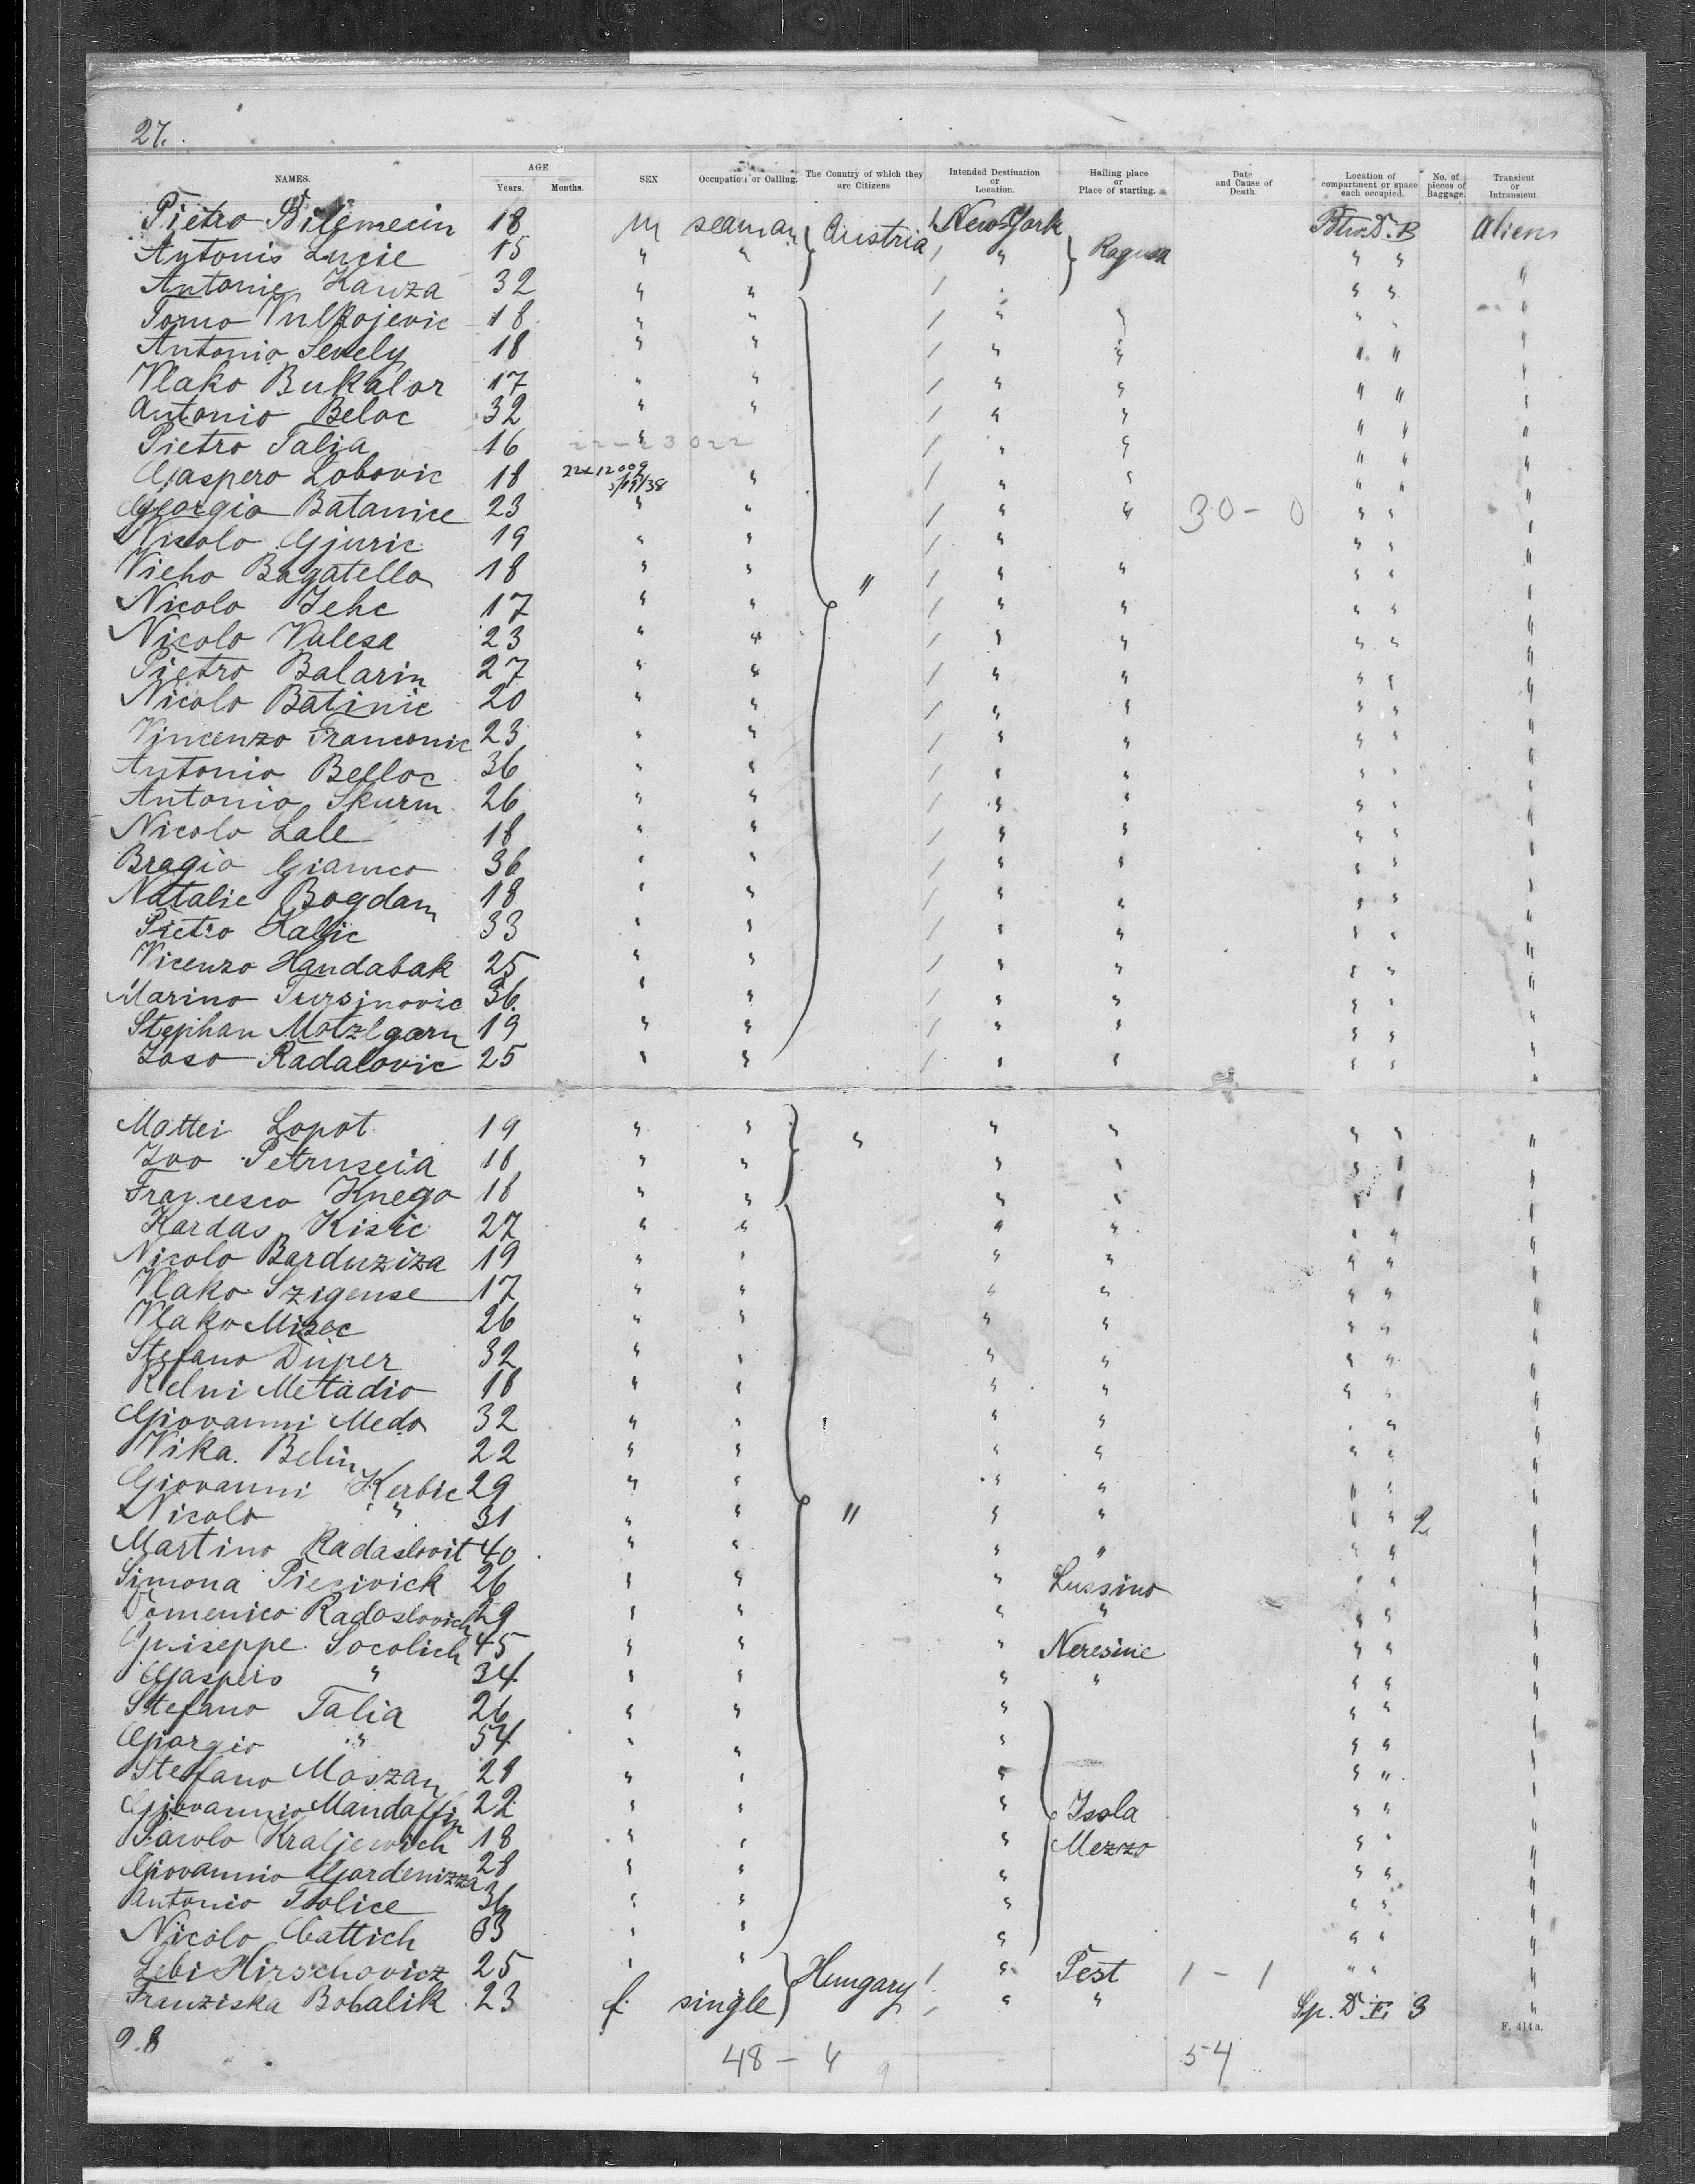 27.
NAMES. AGE Years. Months. SEX Occupation or Calling. The Country of which they are Citizens Intended Destination or Location. Hailing place or Place of starting. Date and Cause of Death. Location of compartment or space each occupied. No. of pieces of Baggage. Transient or Intransient.
Pietro 18 M seaman Austria New York Btw.D.B aliens
Antonio Lucie 15 " " " Ragusa " " "
Antonio Kanza 32 " " " " "
Tomo 18 " " " " " " "
Antonio 18 " " " " " " "
Vlako Bukalor 17 " " " " " " "
Antonio Beloc 32 " " " " " " "
Pietro Talia 16 " " " " " "
Gaspero Lobovic 18 " " " " " "
Georgio Batanice 23 " " " " 30 - 0 " " "
Nicolo Gjuric 19 " " " " " "
Vicho Bagatella 18 " " " " " " " "
Nicolo Jehc 17 " " " " " " "
Nicolo Valesa 23 " " " " " " "
Pietro Balarin 27 " " " " " " "
Nicolo Batinic 20 " " " " " " "
Vincenzo Franconic 23 " " " " " " "
Antonio Belloc 36 " " " " " " "
Antonio Skurm 26 " " " " " " "
Nicolo Lale 18 " " " " " " "
Bragio Giamco 36 " " " " " " "
Natalie Bogdam 18 " " " " " " "
Pietro Kaljic 33 " " " " " " "
Vicenzo Handabak 25 " " " " " " "
Marino 36 " " " " " " "
Stephan Motzlgarn 19 " " " " " " "
Joso Radalovic 25 " " " " " " "
Mattei Lopot 19 " " " " " " " "
Ivo Petruscia 18 " " " " " " "
Francesco Knego 18 " " " " " " "
Kardas Kisic 27 " " " " " " "
Nicolo Barduziza 19 " " " " " " "
Vlako Szigense 17 " " " " " " "
Vlako 26 " " " " " " "
Stefano Duper 32 " " " " " " "
Relni Metadio 18 " " " " " " "
Giovanni Medo 32 " " " " " " "
Vika Belin 22 " " " " " " "
Giovanni Kerbic 29 " " " " " " "
Nicolo " 31 " " " " " " " 2 "
Martino Radaslovit 40 " " " " " " "
Simona Piecivick 26 " " " Lussino " " "
Domenico Radoslovich 29 " " " " " " "
Guiseppe Socolich 45 " " " Neresine " " "
Gaspero " 34 " " " " " " "
Stefano Talia 26 " " " " " "
Giorgio " 54 " " " " " "
Stefano Moszan 28 " " " " " "
Giovannio 22 " " " Isola " " "
Paolo Kraljewich 18 " " " Mezzo " " "
Giovannio Gardenizza 28 " " " " " "
Antonio Tolice 36 " " " " " "
Nicolo Cattich 33 " " " " " "
Lebi Hirschovicz 25 " " Hungary " Pest 1 - 1 " " "
Franziska Bobalik 23 f. single " " Sp. D. E. 3 "
F. 414a.
48 - 54